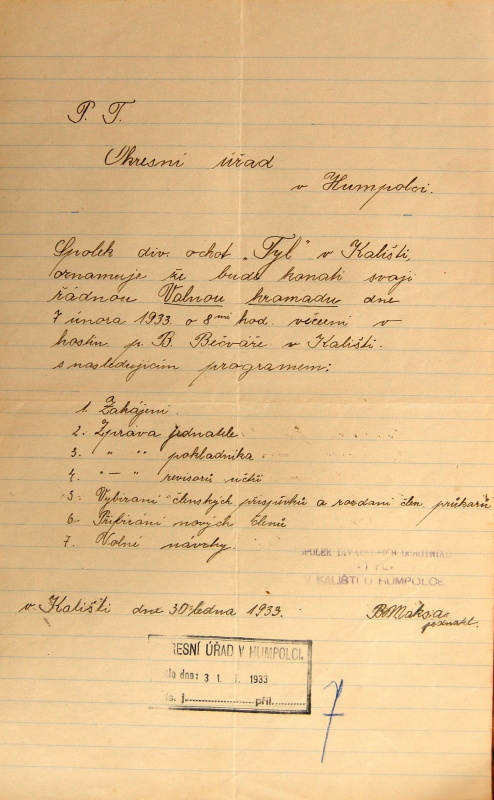 P. T.
Okresní úřad
v Humpolci.
Spolek div. ochot „Tyl" v Kališti,
oznamuje že bude konati svoji
řádnou Valnou hromadu dne
7 února 1933. o 8mi hod. večerní v
hostin p. B. Bečváře v Kališti.
s nasledujicim programem:
1. Zahájení.
2. Zpráva jednatele
3. " " pokladnika
4. " — " revisorů účtů
5. Vybírani členských příspěvků a rozdani člen. průkazů
6. Přibírání nových členů
7. Volní návrhy.
V KALIŠTI U HUMPOLCE
v Kališti dne 30 ledna 1933.
B Maksa
jednatel.
RESNÍ ÚŘAD V HUMPOLCI.
lo dne: 3 1. I. 1933
is. j. příl.
7